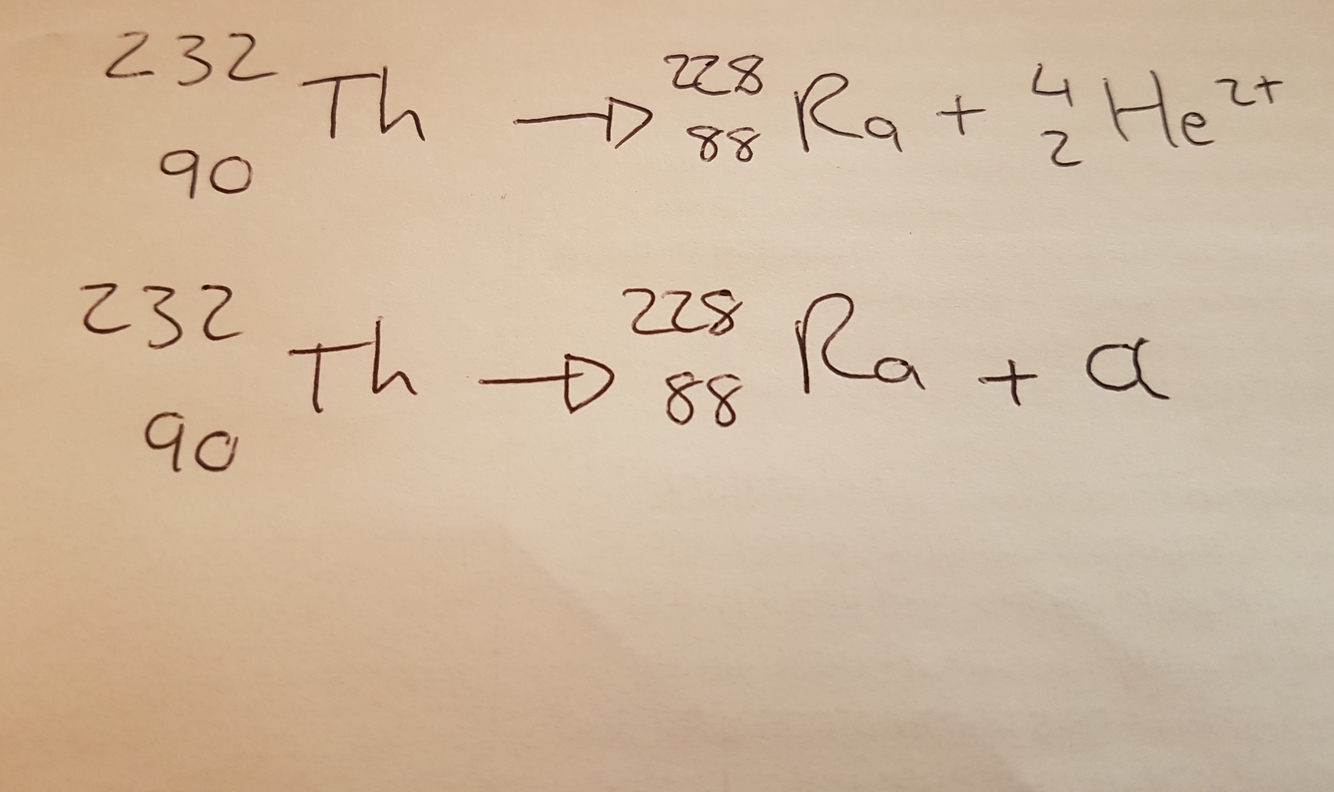 ²³²₉₀Th → ²²⁸₈₈Ra + ⁴₂He²⁺
²³²₉₀Th → ²²⁸₈₈Ra + α